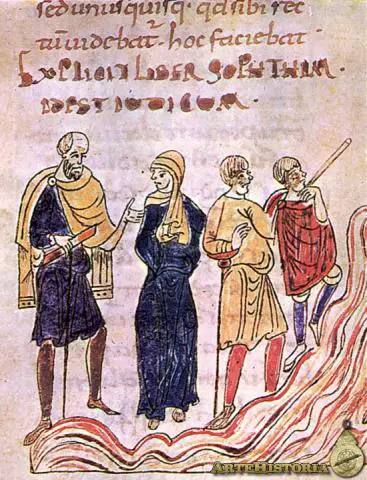 sed unusquisq· qd sibi rec
tū uidebat· hoc faciebat·
EXPLICIT LIBER SOPHTHIM·
IDEST IUDICUM·
ARTEHISTORIA